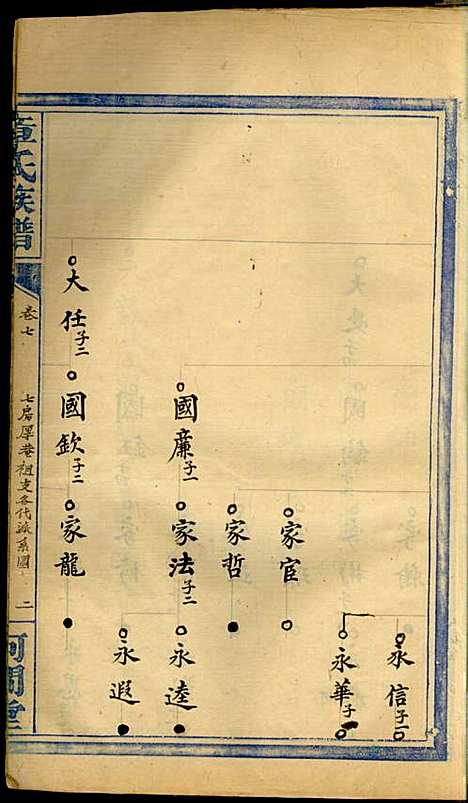 章氏族譜
卷七
七房厚菴祖支各代派系圖
二
河間堂
永信子一
永華子一
家官
家哲
國廉子一
家法子二
永逵
永遐
大任子二
國欽子二
家龍